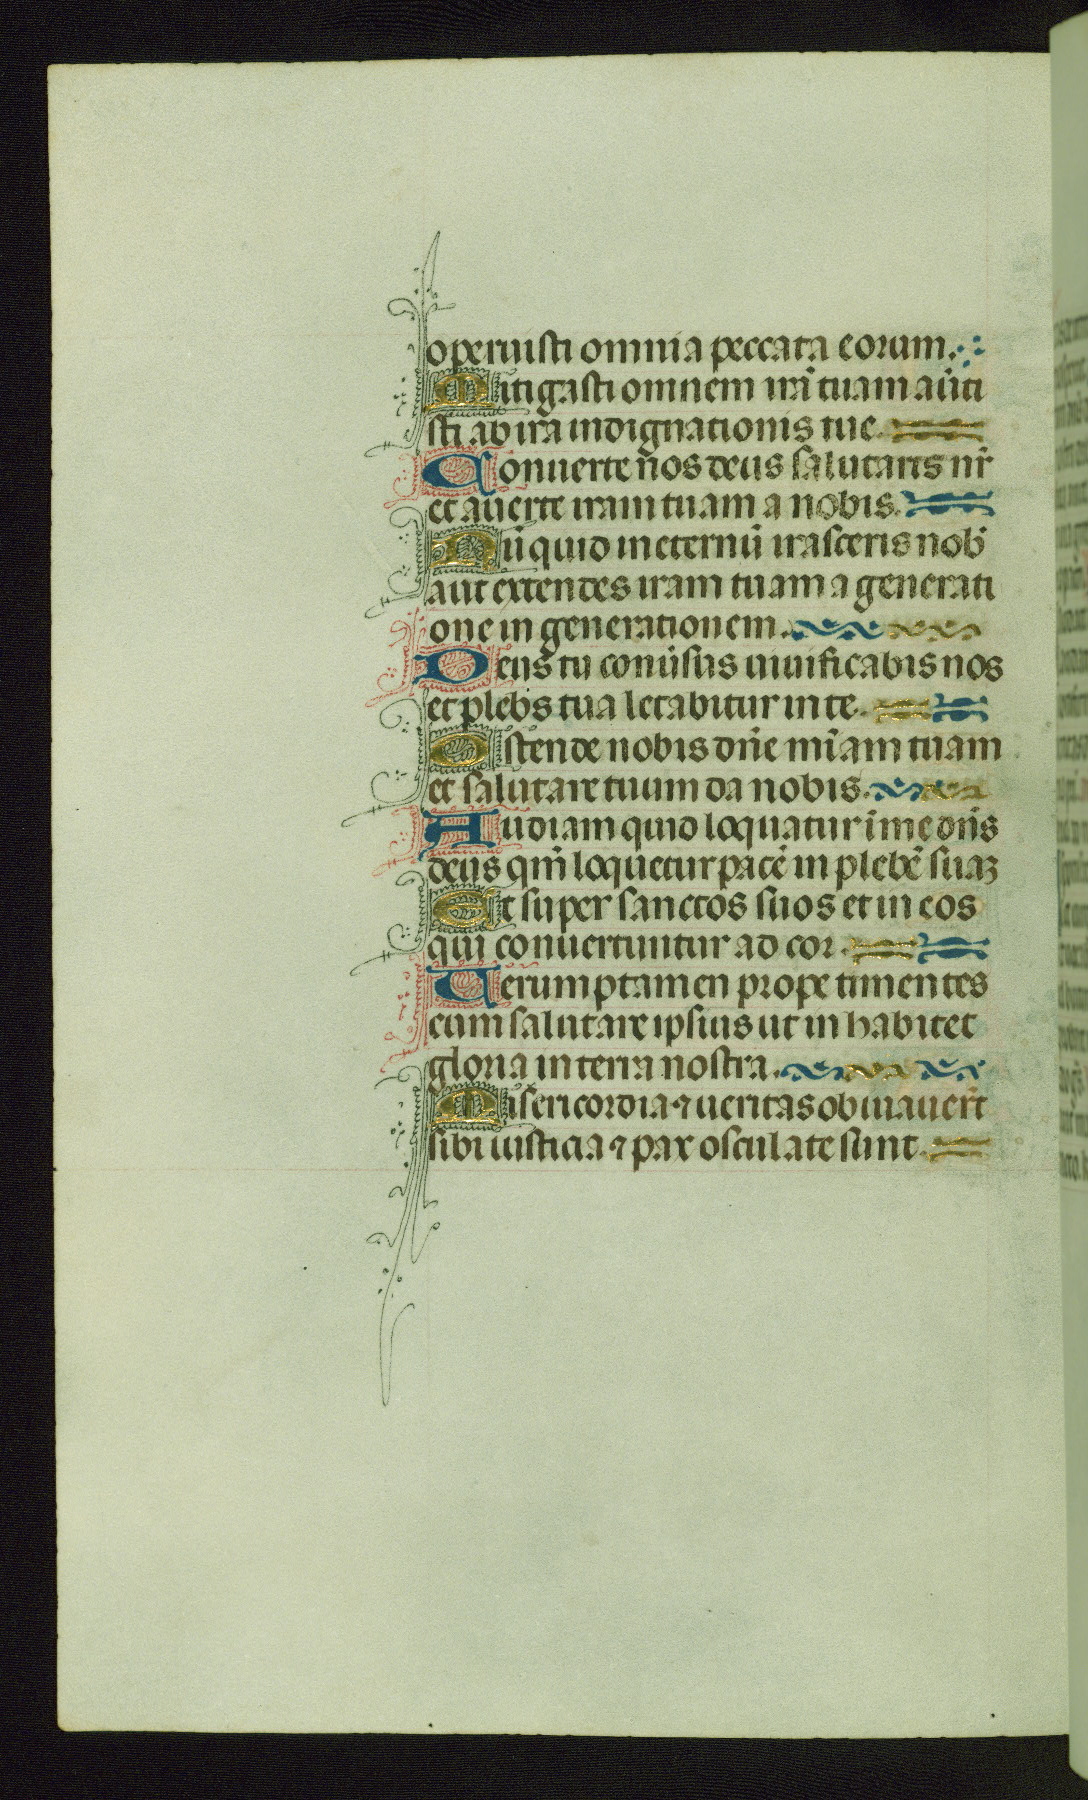 operuisti omnia peccata eorum.
Mitigasti omnem irā tuam au̾ti
sti ab ira indignationis tue.
Conuerte nos deus salutaris nr̄
et auerte iram tuam a nobis.
Nūquid in eternū irasceris nob̄
aut extendes iram tuam a generati
one in generationem.
Deus tu conu̾sus uiuificabis nos
et plebs tua letabitur in te.
Ostende nobis dn̄e mīam tuam
et salutare tuum da nobis.
Audiam quid loquatur ī me dn̄s
deus qm̄ loquetur pacē in plebē suaꝫ
Et super sanctos suos et in eos
qui conuertuntur ad cor.
Uerumptamen prope timentes
eum salutare ipsius ut inhabitet
gloria in terra nostra.
Misericordia ⁊ ueritas obuiauer̄t
sibi iusticia ⁊ pax osculate sunt.